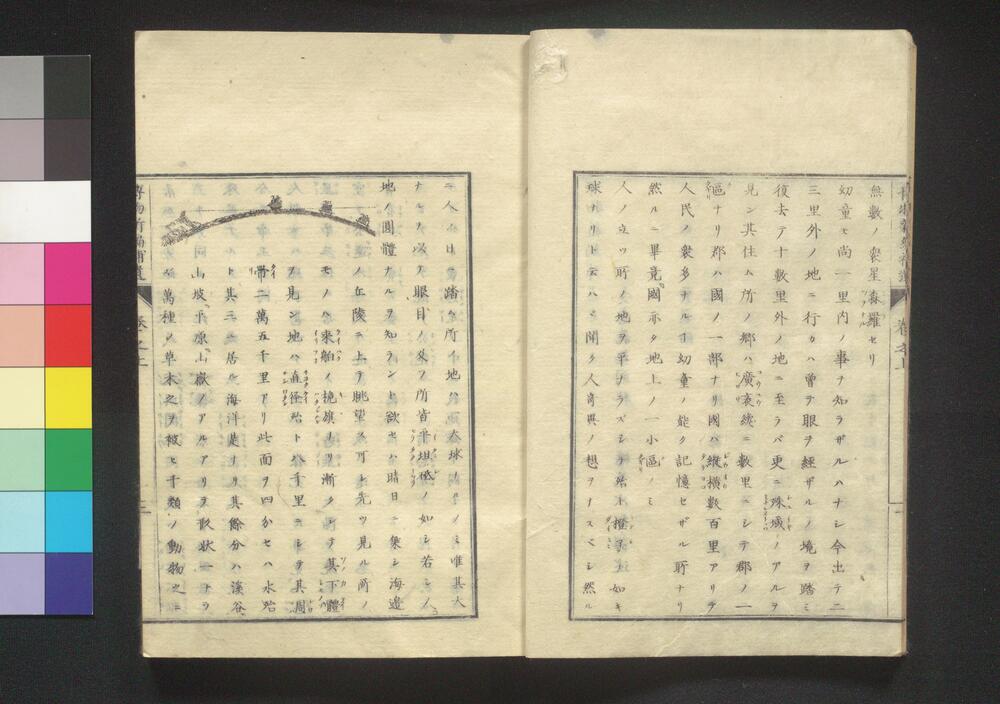 無數ノ衆星森羅セリ
幼童モ尚一里内ノ事ヲ知ラザルハナシ今出テ二
三里外ノ地ニ行カハ曽テ眼ヲ經ザルノ境ヲ踏ミ
復去テ十數里外ノ地ニ至ラバ更ニ殊域ノアルヲ
見ン其住ム所ノ郷ハ廣袤纔ニ數里ニシテ郡ノ一
區ナリ郡ハ國ノ一部ナリ國ハ縱横數百里アリテ
人民ノ衆多ナルヿ幼童ノ能ク記憶セザル所ナリ
然ルニ畢竟國亦タ地上ノ一小區ノミ
人ノ立ツ所ノ地ヲ平ナラズシテ殆ト橙子ノ如キ
球ナリト云ハヾ聞ク人奇異ノ想ヲナスベシ然ル
ニ人ノ日ニ踏ム所ノ地ハ大球ノ
ミ唯其大
ナルヲ以テ眼目ノ及フ所皆平坦砥ノ如シ若シ人
地ノ圓體ナルヲ知ラント欲セハ晴日ニ乗シ海邉
ノ丘陵ニ上テ眺望ス可シ先ツ見ル所ノ
モノハ來舶ノ桅旗ナリ漸クシテ其下體
ヲ見ン地ハ直徑殆ト八千里ニシテ其周
帶二萬五千里アリ此面ヲ四分セハ水殆
ト其三ニ居ル海洋是ナリ其餘分ハ溪谷
山坡平原山嶽ノアルアリテ形状一ナラ
萬種ノ草木之ヲ被ヒ千類ノ動物之ニ